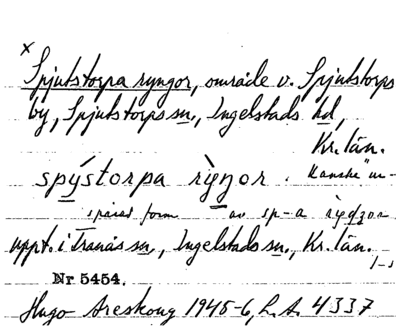 x
Spjutstorpa ryngor, område v. Spjutstorps
by, Spjutstorps sn., Ingelstads hd,
Kr. län.
spýstorpa rỳŋor. Kanske
form av sp-a
uppt. i Tranås sn., Ingelstads sn., Kr. län.
Nr 5454.
Hugo Areskoug 1945-6, L.A. 4337